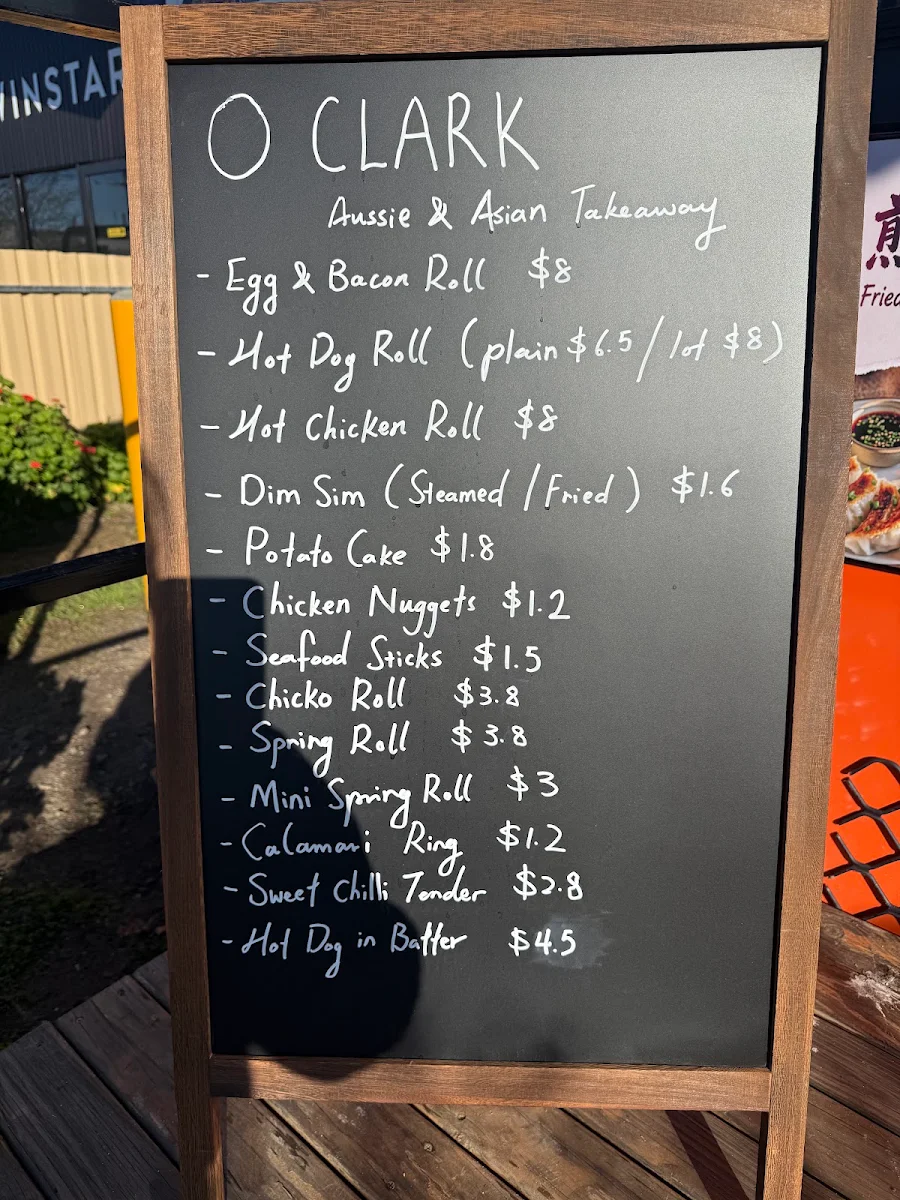 WINSTAR
O CLARK
Aussie & Asian Takeaway
- Egg & Bacon Roll $8
- Hot Dog Roll (plain $6.5 / lot $8)
- Hot Chicken Roll $8
- Dim Sim (Steamed / Fried) $1.6
- Potato Cake $1.8
- Chicken Nuggets $1.2
- Seafood Sticks $1.5
- Chicko Roll $3.8
- Spring Roll $3.8
- Mini Spring Roll $3
- Calamari Ring $1.2
- Sweet Chilli Tender $2.8
- Hot Dog in Batter $4.5
煎
Fried